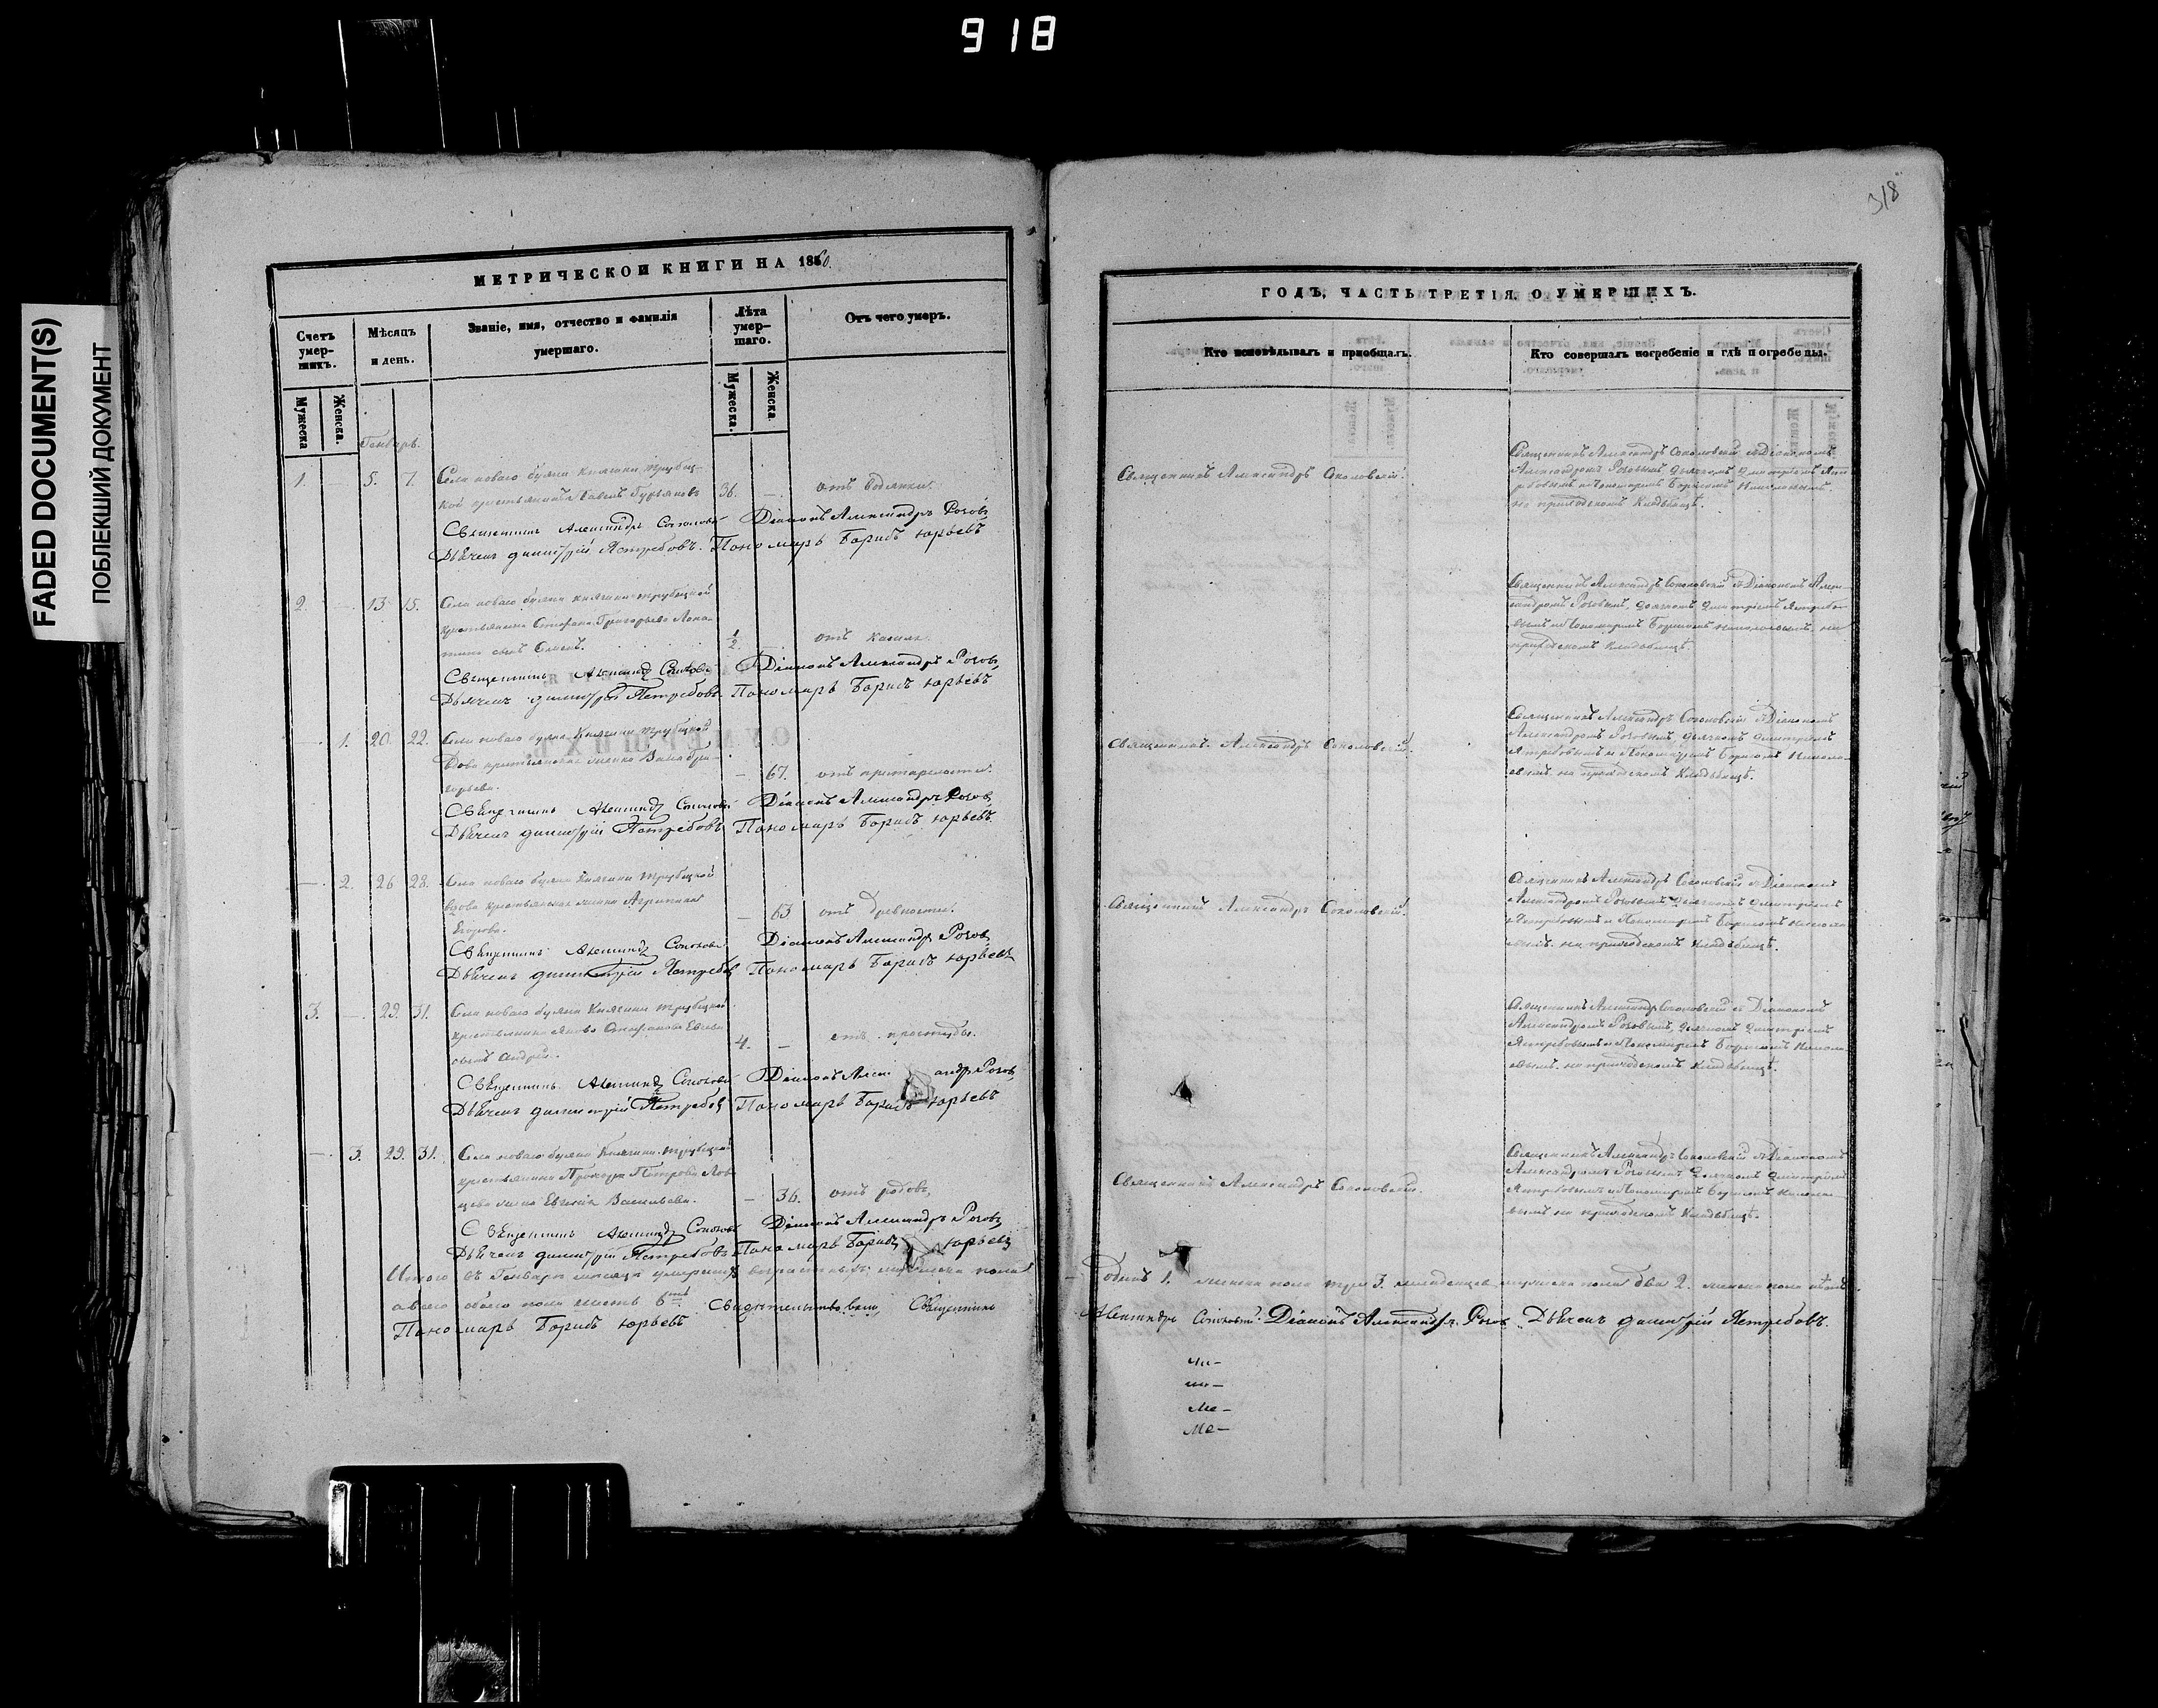 918
FADED DOCUMENT(S)
ПОБЛЕКШИЙ ДОКУМЕНТ
318
МЕТРИЧЕСКОЙ КНИГИ НА 1860
Счетъ умер-шихъ.
Мѣсяцъ и день.
Званіе, имя, отчество и фамилія умершаго.
Лѣта умер-шаго.
Отъ чего умеръ.
Мужеска
Женска.
Мужеска.
Женска.
Генварь.
1. — 5. 7. Села новаго буяна Княгини Трубец-
кой крестьянинъ Павелъ Гурьяновъ 36. — отъ водянки.
Священникъ Александръ Соколовскій Діаконъ Александръ Розовъ
Дьячекъ Димитрій Ястребовъ. Пономарь Борисъ Юрьевъ
2. — 13 15. Села новаго буяна Княгини Трубецкой
крестьянина Стефана Григорьева
сынъ 1/2 — отъ кашля.
Священникъ Александръ Соколовскій Діаконъ Александръ Розовъ
Дьячекъ Димитрій Ястребовъ Пономарь Борисъ Юрьевъ
— 1. 20. 22. Села новаго буяна Княгини Трубецкой
Вдова крестьянская женка
— 67. отъ престарелости.
Священникъ Александръ Соколовскій Діаконъ Александръ Розовъ
Дьячекъ Димитрій Ястребовъ Пономарь Борисъ Юрьевъ
— 2. 26 28. Села новаго буяна Княгини Трубецкой
вдова крестьянская женка
Егорова. — 63 отъ древности.
Священникъ Александръ Соколовскій Діаконъ Александръ Розовъ
Дьячекъ Димитрій Ястребовъ Пономарь Борисъ Юрьевъ
3. — 29. 31. Села новаго буяна Княгини Трубецкой
крестьянина Якова Стефанова
сынъ Андрей. 4. — отъ простуды.
Священникъ Александръ Соколовскій Діаконъ Александръ Розовъ
Дьячекъ Димитрій Ястребовъ Пономарь Борисъ Юрьевъ
— 3. 29. 31. Села новаго буяна Княгини Трубецкой
крестьянина Прохора Петрова
жена Евгенія Васильева. — 36. отъ родовъ
Священникъ Александръ Соколовскій Діаконъ Александръ Розовъ
Дьячекъ Димитрій Ястребовъ Пономарь Борисъ Юрьевъ
Итого въ Генварѣ мѣсяцѣ умершихъ возрастныхъ мужеска пола
обоего пола шесть 6. Священникъ
Пономарь Борисъ Юрьевъ
ГОДЪ, ЧАСТЬ ТРЕТІЯ, О УМЕРШИХЪ.
Кто исповѣдывалъ и пріобщалъ.
Кто совершалъ погребеніе и гдѣ погребены.
Священникъ Александръ Соколовскій.
Священникъ Александръ Соколовскій съ Діакономъ
Александромъ Розовымъ дьячкомъ Димитріемъ Яст-
ребовымъ и Пономаремъ Борисомъ Николаевымъ.
на приходскомъ Кладбищѣ.
Священникъ Александръ Соколовскій съ Діакономъ Алек-
сандромъ Розовымъ, дьячкомъ Димитріемъ Ястребо-
вымъ и Пономаремъ Борисомъ Николаевымъ, на
приходскомъ Кладбищѣ.
Священникъ Александръ Соколовскій.
Священникъ Александръ Соколовскій съ Діакономъ
Александромъ Розовымъ, дьячкомъ Димитріемъ
Ястребовымъ и Пономаремъ Борисомъ Никола-
евымъ. на приходскомъ Кладбищѣ.
Священникъ Александръ Соколовскій.
Священникъ Александръ Соколовскій съ Діакономъ
Александромъ Розовымъ дьячкомъ Димитріемъ
Ястребовымъ и Пономаремъ Борисомъ Никола-
евымъ. на приходскомъ Кладбищѣ.
Священникъ Александръ Соколовскій съ Діакономъ
Александромъ Розовымъ, дьячкомъ Димитріемъ
Ястребовымъ и Пономаремъ Борисомъ Никола-
евымъ. на приходскомъ Кладбищѣ.
Священникъ Александръ Соколовскій.
Священникъ Александръ Соколовскій съ Діакономъ
Александромъ Розовымъ дьячкомъ Димитріемъ
Ястребовымъ и Пономаремъ Борисомъ Никола-
евымъ на приходскомъ Кладбищѣ.
одинъ 1. женска пола три 3. младенцевъ мужеска пола два 2. женска пола нѣтъ
Александръ Соколовскій Діаконъ Александръ Розовъ Дьячекъ Димитрій Ястребовъ.